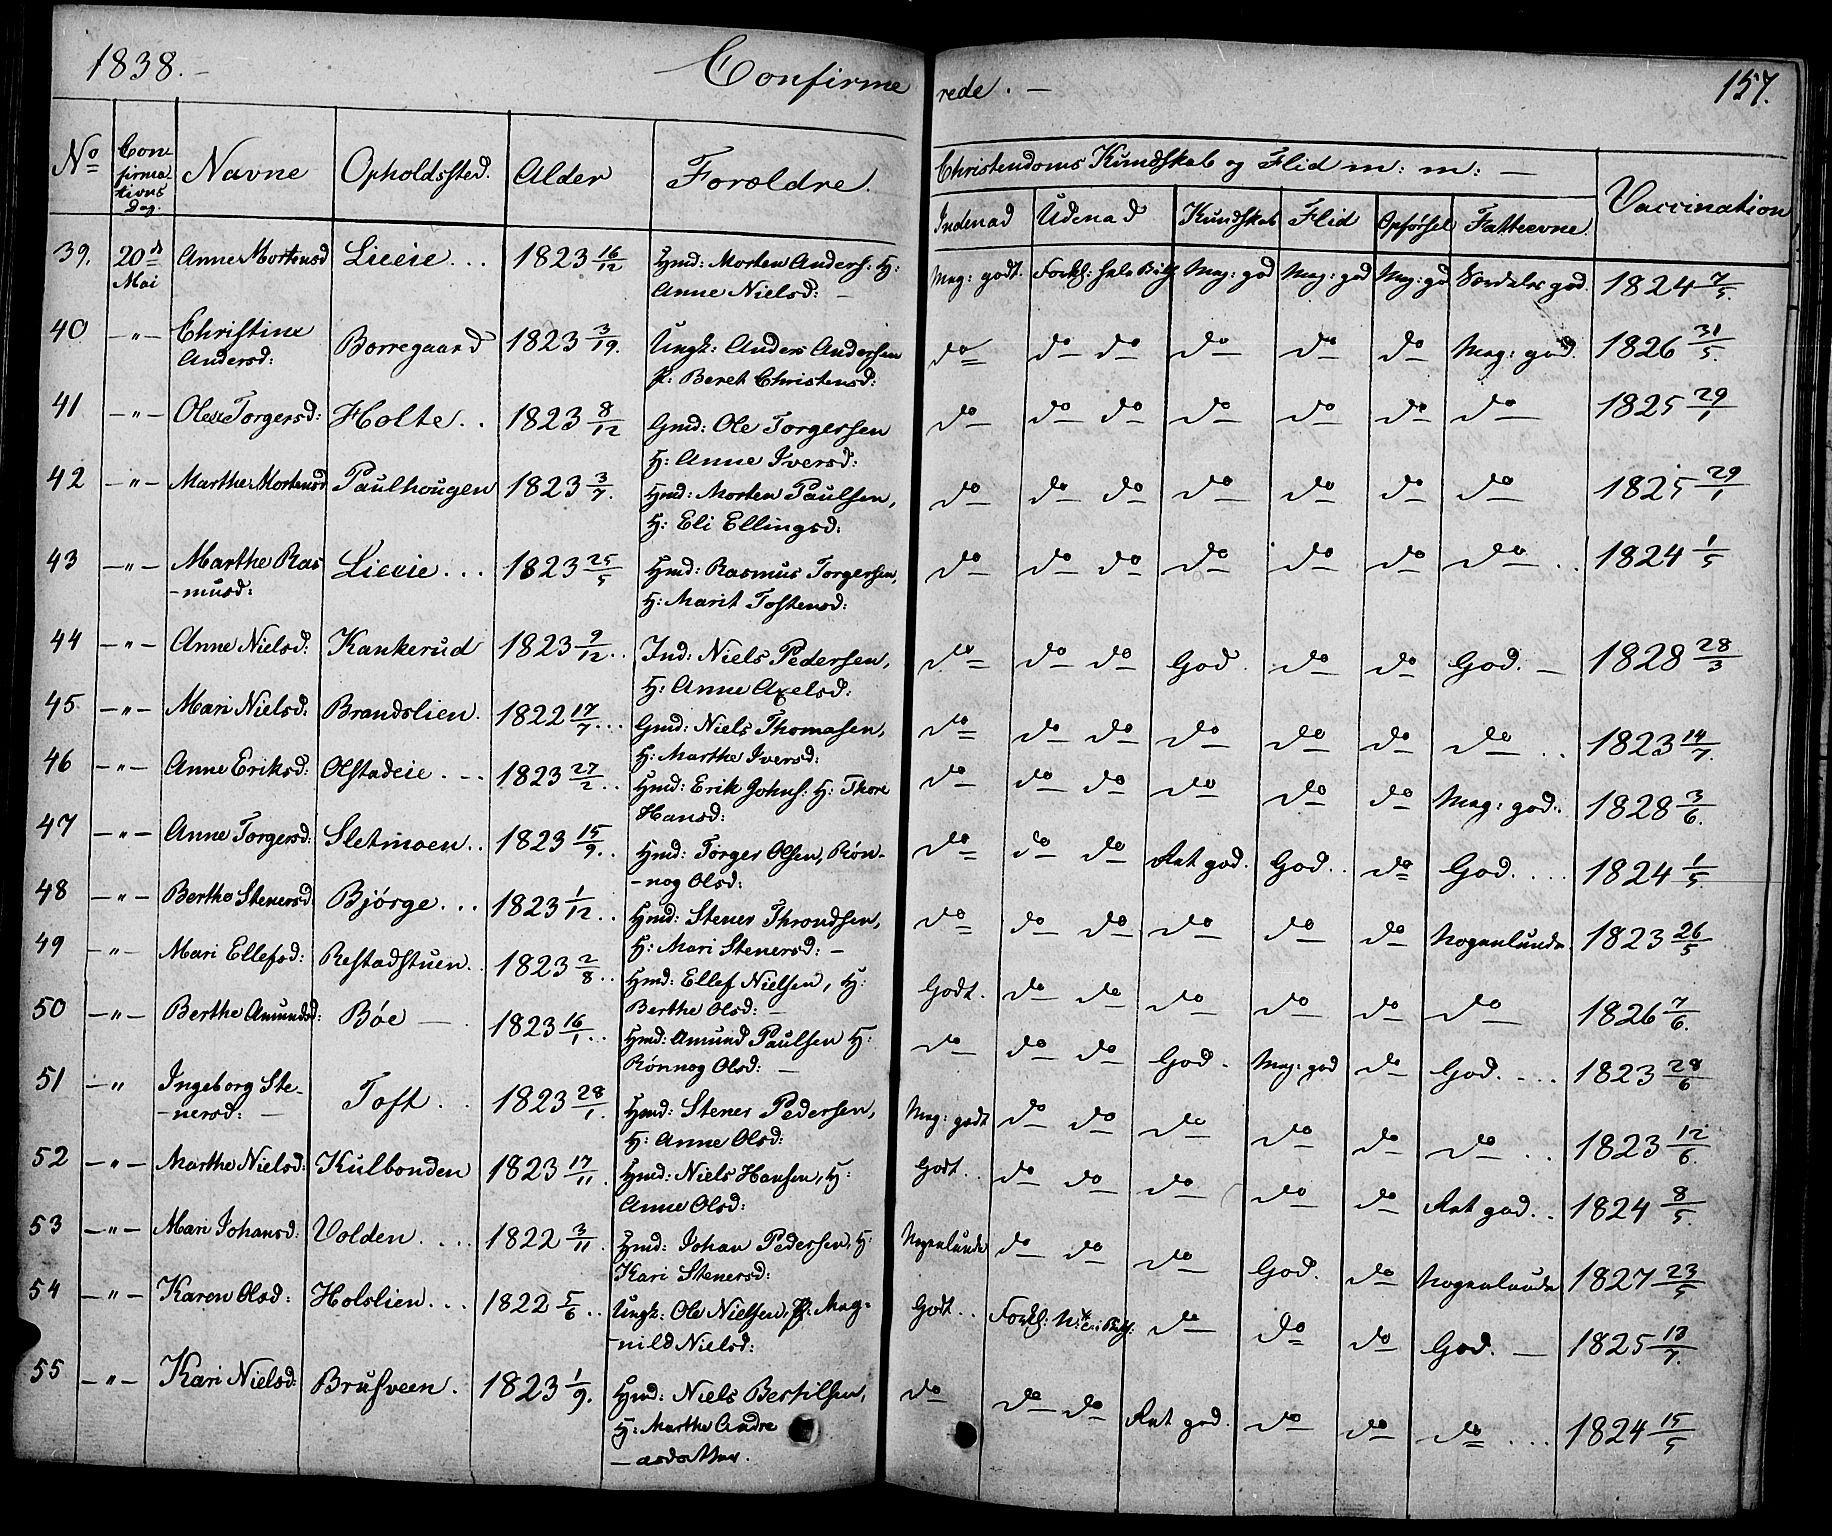 1838. – Confirme rede. – 157.
No Confirmations Dag. Navne Opholdssted. Alder Forældre. Christendoms Kundskab og Flid m: m: – Vaccination
Indenad Udenad Kundskab Flid Opførsel Fatteevne.
39. 20de Mai Anne Mortensd Lieeie... 1823 16/12 Hmd: Morten Anders: H: Mag: godt. Forkl: hele Mag: god Mag: god Mag: god Særdeles god. 1824 7/5.
Anne Nielsd: –
40 –"– Christine Andersd: Borregaard 1823 3/19. Ungk: Anders Andersen do do do do do do Mag: god. 1826 31/5.
P: Beret Christensd:
41 –"– Olea Torgersd: Holte.. 1823 8/12 Gmd: Ole Torgersen do do do do do do do 1825 29/1
H: Anne Iversd:
42 –"– Marthe Mortensd Paulhougen 1823 3/7. Hmd: Morten Paulsen, do do do do do do do 1825 29/1
H: Eli Ellingsd:
43 –"– Marthe Ras Lieeie... 1823 25/5 Hmd: Rasmus Torgersen, do do do do do do do.. 1824 1/5
-musd: H: Marit Tostensd:
44 –"– Anne Nielsd: Kankerud 1823 9/12.. Ind: Niels Pedersen, do do do God. do do God. – 1828 28/3
H: Anne Axelsd:
45 –"– Mari Nielsd: Brandslien. 1822 17/7... Gmd: Niels Thomasen, do do do do do do do.. 1823 14/7.
H: Marthe Iversd:
46 –"– Anne Eriksd: Olstadeie.-- 1823 27/2.. Hmd: Erik Johns: H: Thore do do do do do do Mag: god.. 1828 3/6.
Hansd:
47 –"– Anne Torgersd: Sletmoen.. 1823 15/9.. Hmd: Torger Olsen, Røn- do do do Ret god. God.. do God.... 1824 1/5.
-nog Olsd:
48 –"– Berthe Stenersd Bjørge... 1823 1/12.. Hmd: Stener Throndsen, do do do do do do Nogenlunde 1823 26/5
H: Mari Stenersd: –
49 –"– Mari Ellefsd: Restadstuen.. 1823 2/8.. Hmd: Ellef Nielsen, H: Godt. do do do do do do 1826 7/6.
Berthe Olsd: –
50 –"– Berthe Amundsd: Bøe –. 1823 16/1.. Hmd: Amund Paulsen H: do do do God. Mag: god do God.... 1823 28/6
Rønnog Olsd: –
51 –" Ingeborg Ste- Toft.. 1823 28/1. Hmd: Stener Pedersen, Mag: godt do do do do do do.. 1823 12/6.
-nersd: – H: Anne Olsd:
52 –"– Marthe Nielsd: Kulbonden 1823 17/11. Hmd: Niels Hansen, H: Godt.. do do do do do Ret god.. 1824 8/5.
Anne Olsd:
53 –"– Mari Johansd: Volden.... 1822 3/11. Hmd: Johan Pedersen, H: Nogenlunde do do do God. do Nogenlunde 1827 23/5
Kari Stenersd:
54 –"– Karen Olsd: Holslien... 1822 5/6.. Ungk: Ole Nielsen, P: Mag- Godt.. Forkl: do do do God. – 1825 13/7.
-nild Nielsd:
55 –"– Kari Nielsd: Brusveen. 1823 1/9. Hmd: Niels Bertilsen, do do do Ret god. do do do.... 1824 15/5
H: Marthe Andre
– asdatter.